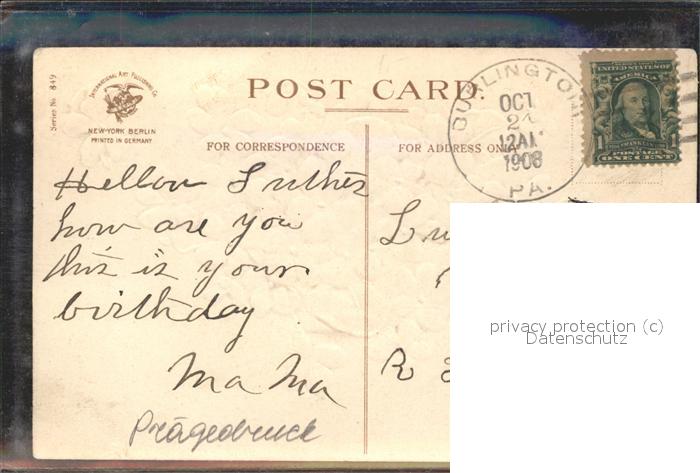 Series No. 849
INTERNATIONAL ART PUBLISHING Co.
NEW-YORK BERLIN
PRINTED IN GERMANY
POST CARD.
FOR CORRESPONDENCE
FOR ADDRESS ONLY
BURLINGTON
OCT
24
12AM
1908
PA.
UNITED STATES OF
AMERICA
1 1
FRANKLIN
POSTAGE
ONE CENT
Hellow Luther
how are you
this is your
birthday
Ma Ma
Prägedruck
Lu
R
privacy protection (c)
Datenschutz